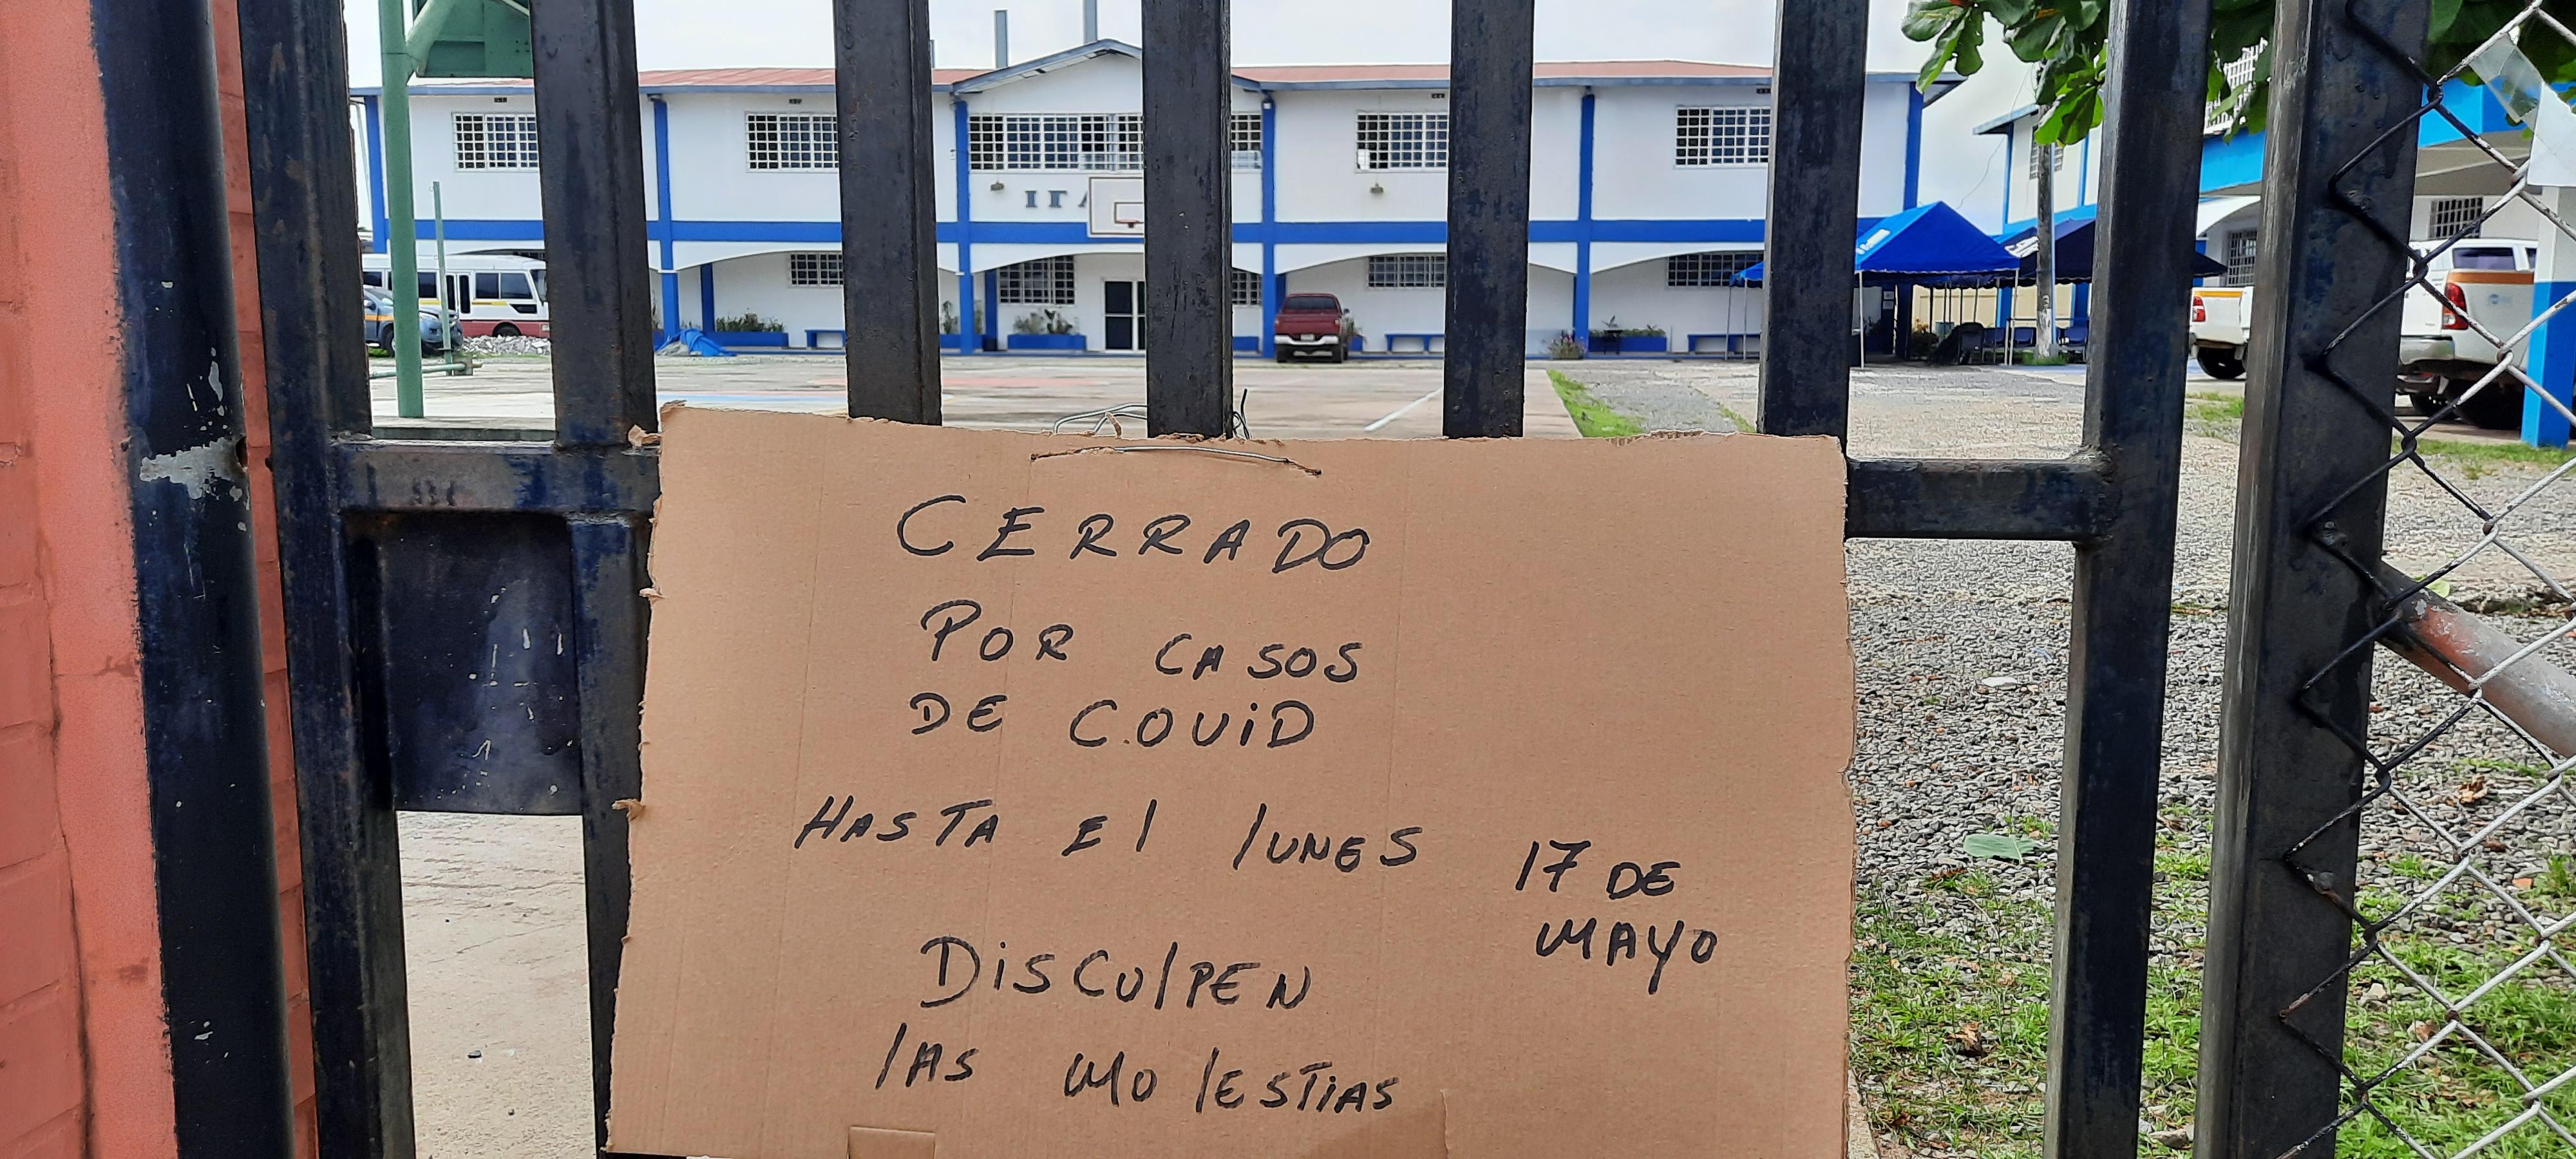 CERRADO
POR CASOS
DE COViD
HASTA El lUNES 17 DE
MAYO
DiSCUlPEN
lAS MOlESTiAS